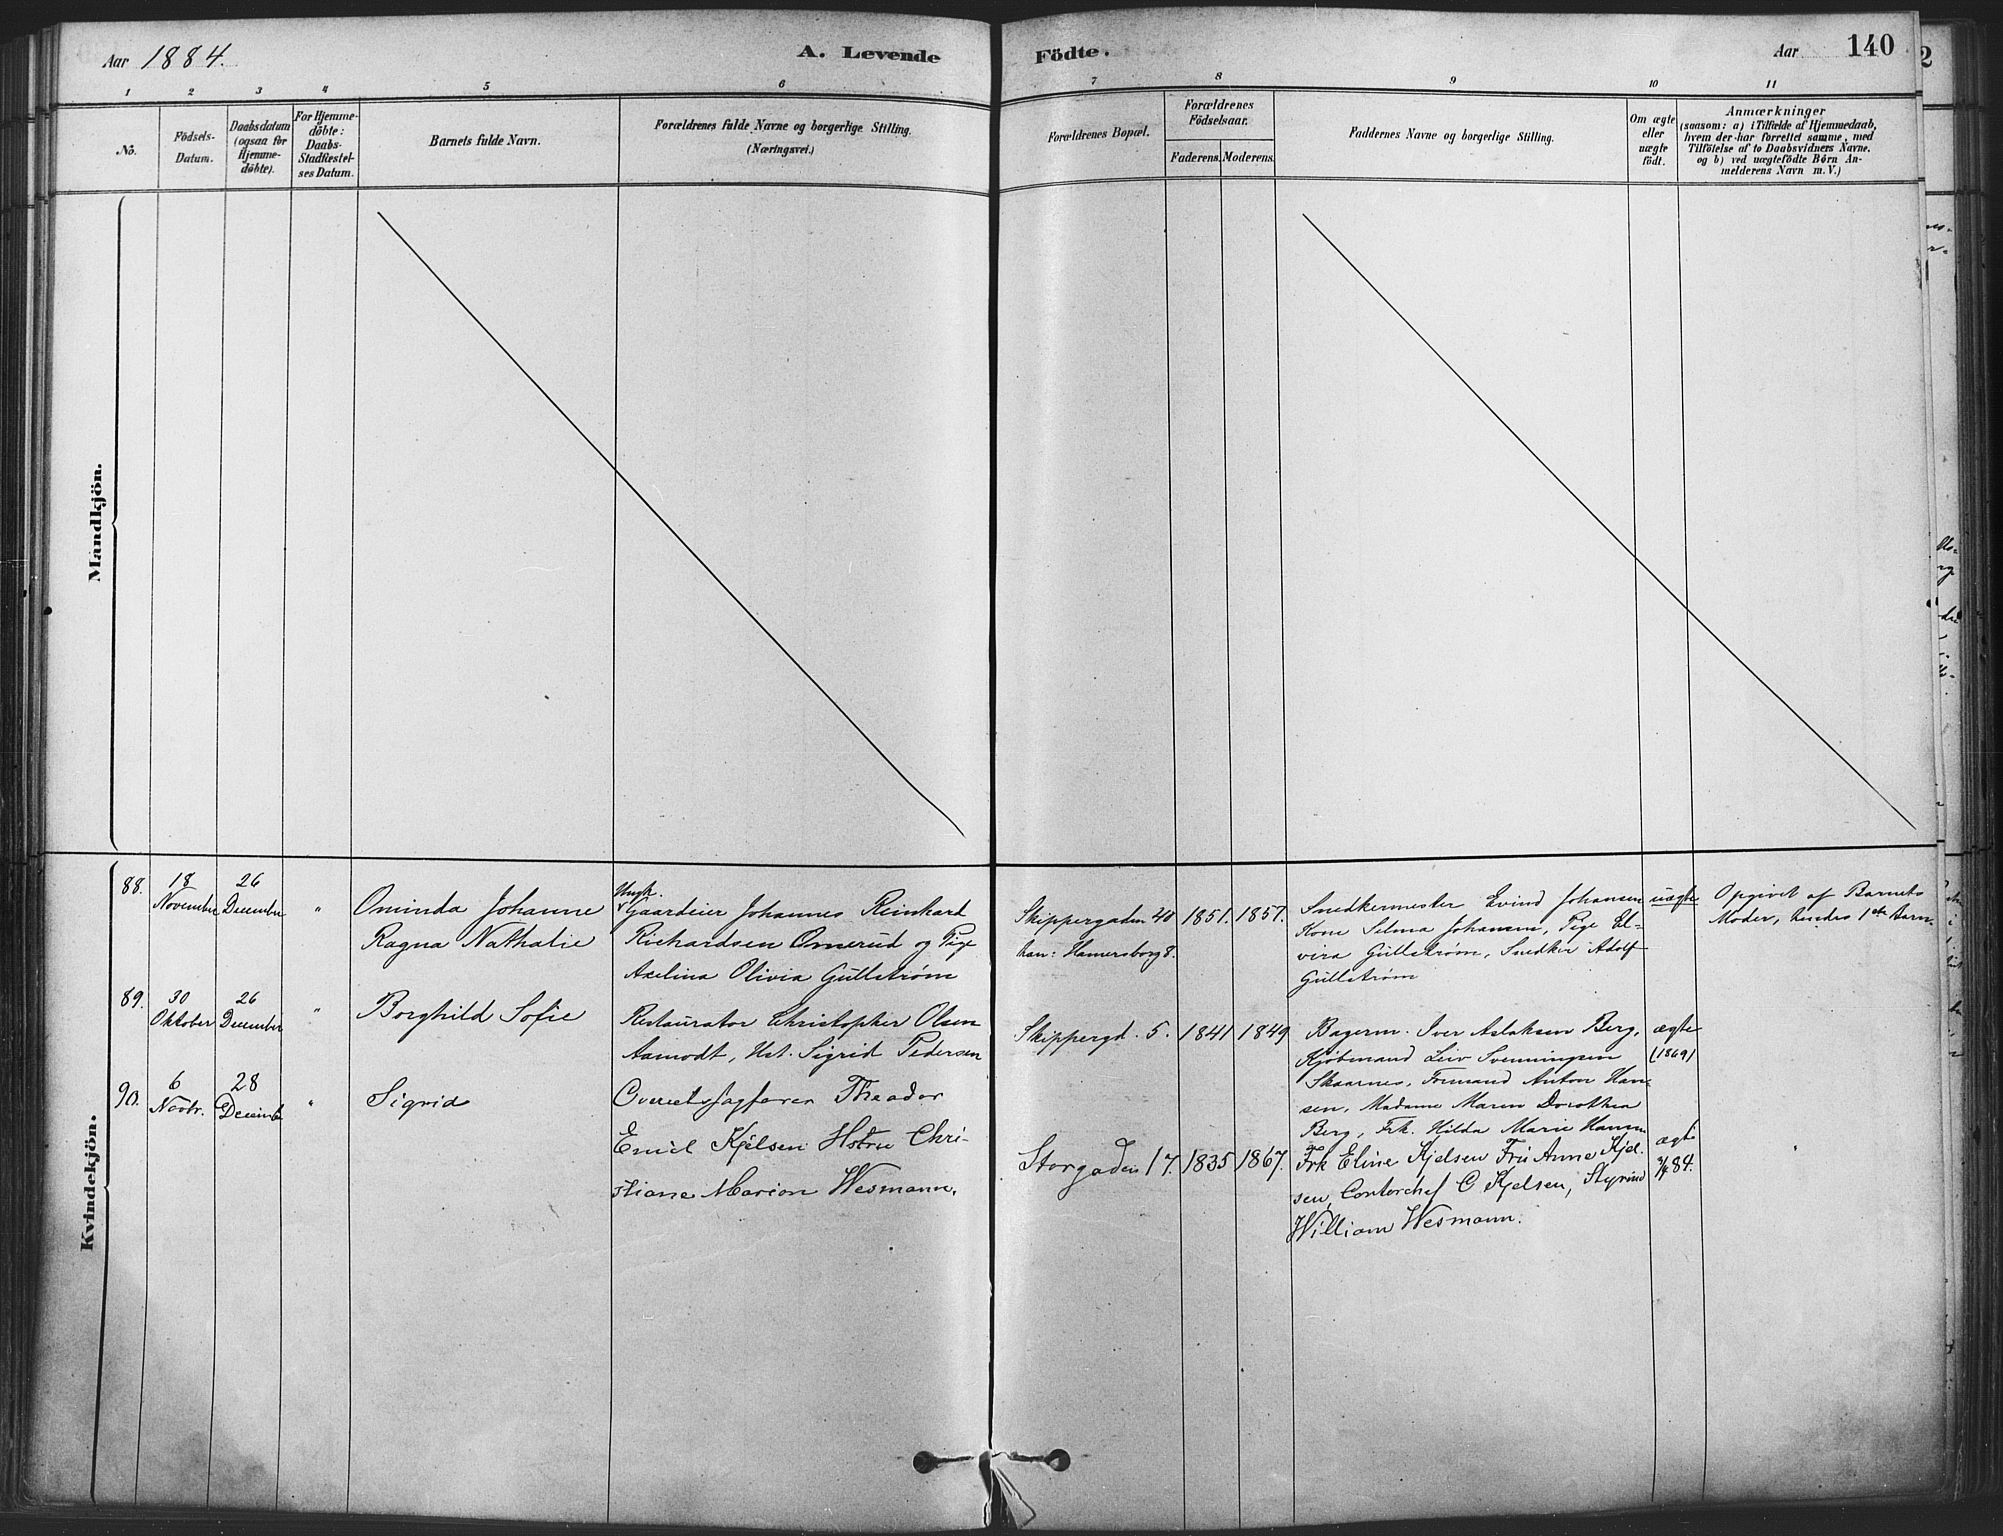 Aar 1884.
A. Levende
Födte.
Aar
140
1
2
3
4
5
6
7
8
9
10
11
No.
Födsels-
Datum.
Daabsdatum
(ogsaa for
Hjemme-
döbte).
For Hjemme-
döbte:
Daabs-
Stadfæstel-
ses Datum.
Barnets fulde Navn.
Forældrenes fulde Navne og borgerlige Stilling.
(Næringsvei.)
Forældrenes Bopæl.
Forældrenes
Födselsaar.
Faderens.
Moderens.
Faddernes Navne og borgerlige Stilling.
Om ægte
eller
uægte
födt.
Anmærkninger
(saasom: a) i Tilfælde af Hjemmedaab,
hvem der har forrettet samme, med
Tilföielse af to Daabsvidners Navne,
og b) ved uægtefödte Børn An-
melderens Navn m. V.)
Mandkjön.
Kvindekjön.
88.
18
November
26
December
"
Ominda Johanne
Ragna Nathalie
Ungk.
Gaardeier Johannes Reinhard
Richardsen Omerud og Pige
Axelina Olivia Gullstrøm
Skippergaden 40
han: Hamersborg 8.
1851.
1857.
Snedkermester Evind Johansen
Kone Selma Johansen, Pige El-
vira Gullstrøm, Snedker Adolf
Gullstrøm
uægte
Opgivet af Barnets
Moder, hendes 1ste Barn
89.
30
Oktober
26
December
"
Borghild Sofie
Restauratør Christopher Olsen
Aamodt, Hst. Sigrid Pedersen
Skippergd. 5.
1841
1849
Bagerm. Iver Aslaksen Berg,
Kjöbmand Leiv Svenningsen
Skaarnes, Formand Anton Han-
sen, Madame Maren Dorothea
Berg, Frk. Hilda Marie Hansen
ægte
(1869)
90.
6
Novbr.
28
Decembr
"
Sigrid
Overretssagfører Theodor
Emil Kjelsen Hstru Chri-
stiane Marion Wesmann.
Storgaden 17.
1835
1867.
Frk Eline Kjelsen Fru Anne Kjel-
sen, Contorchef C Kjelsen, Styrmd
William Wesmann.
ægte
84.
"